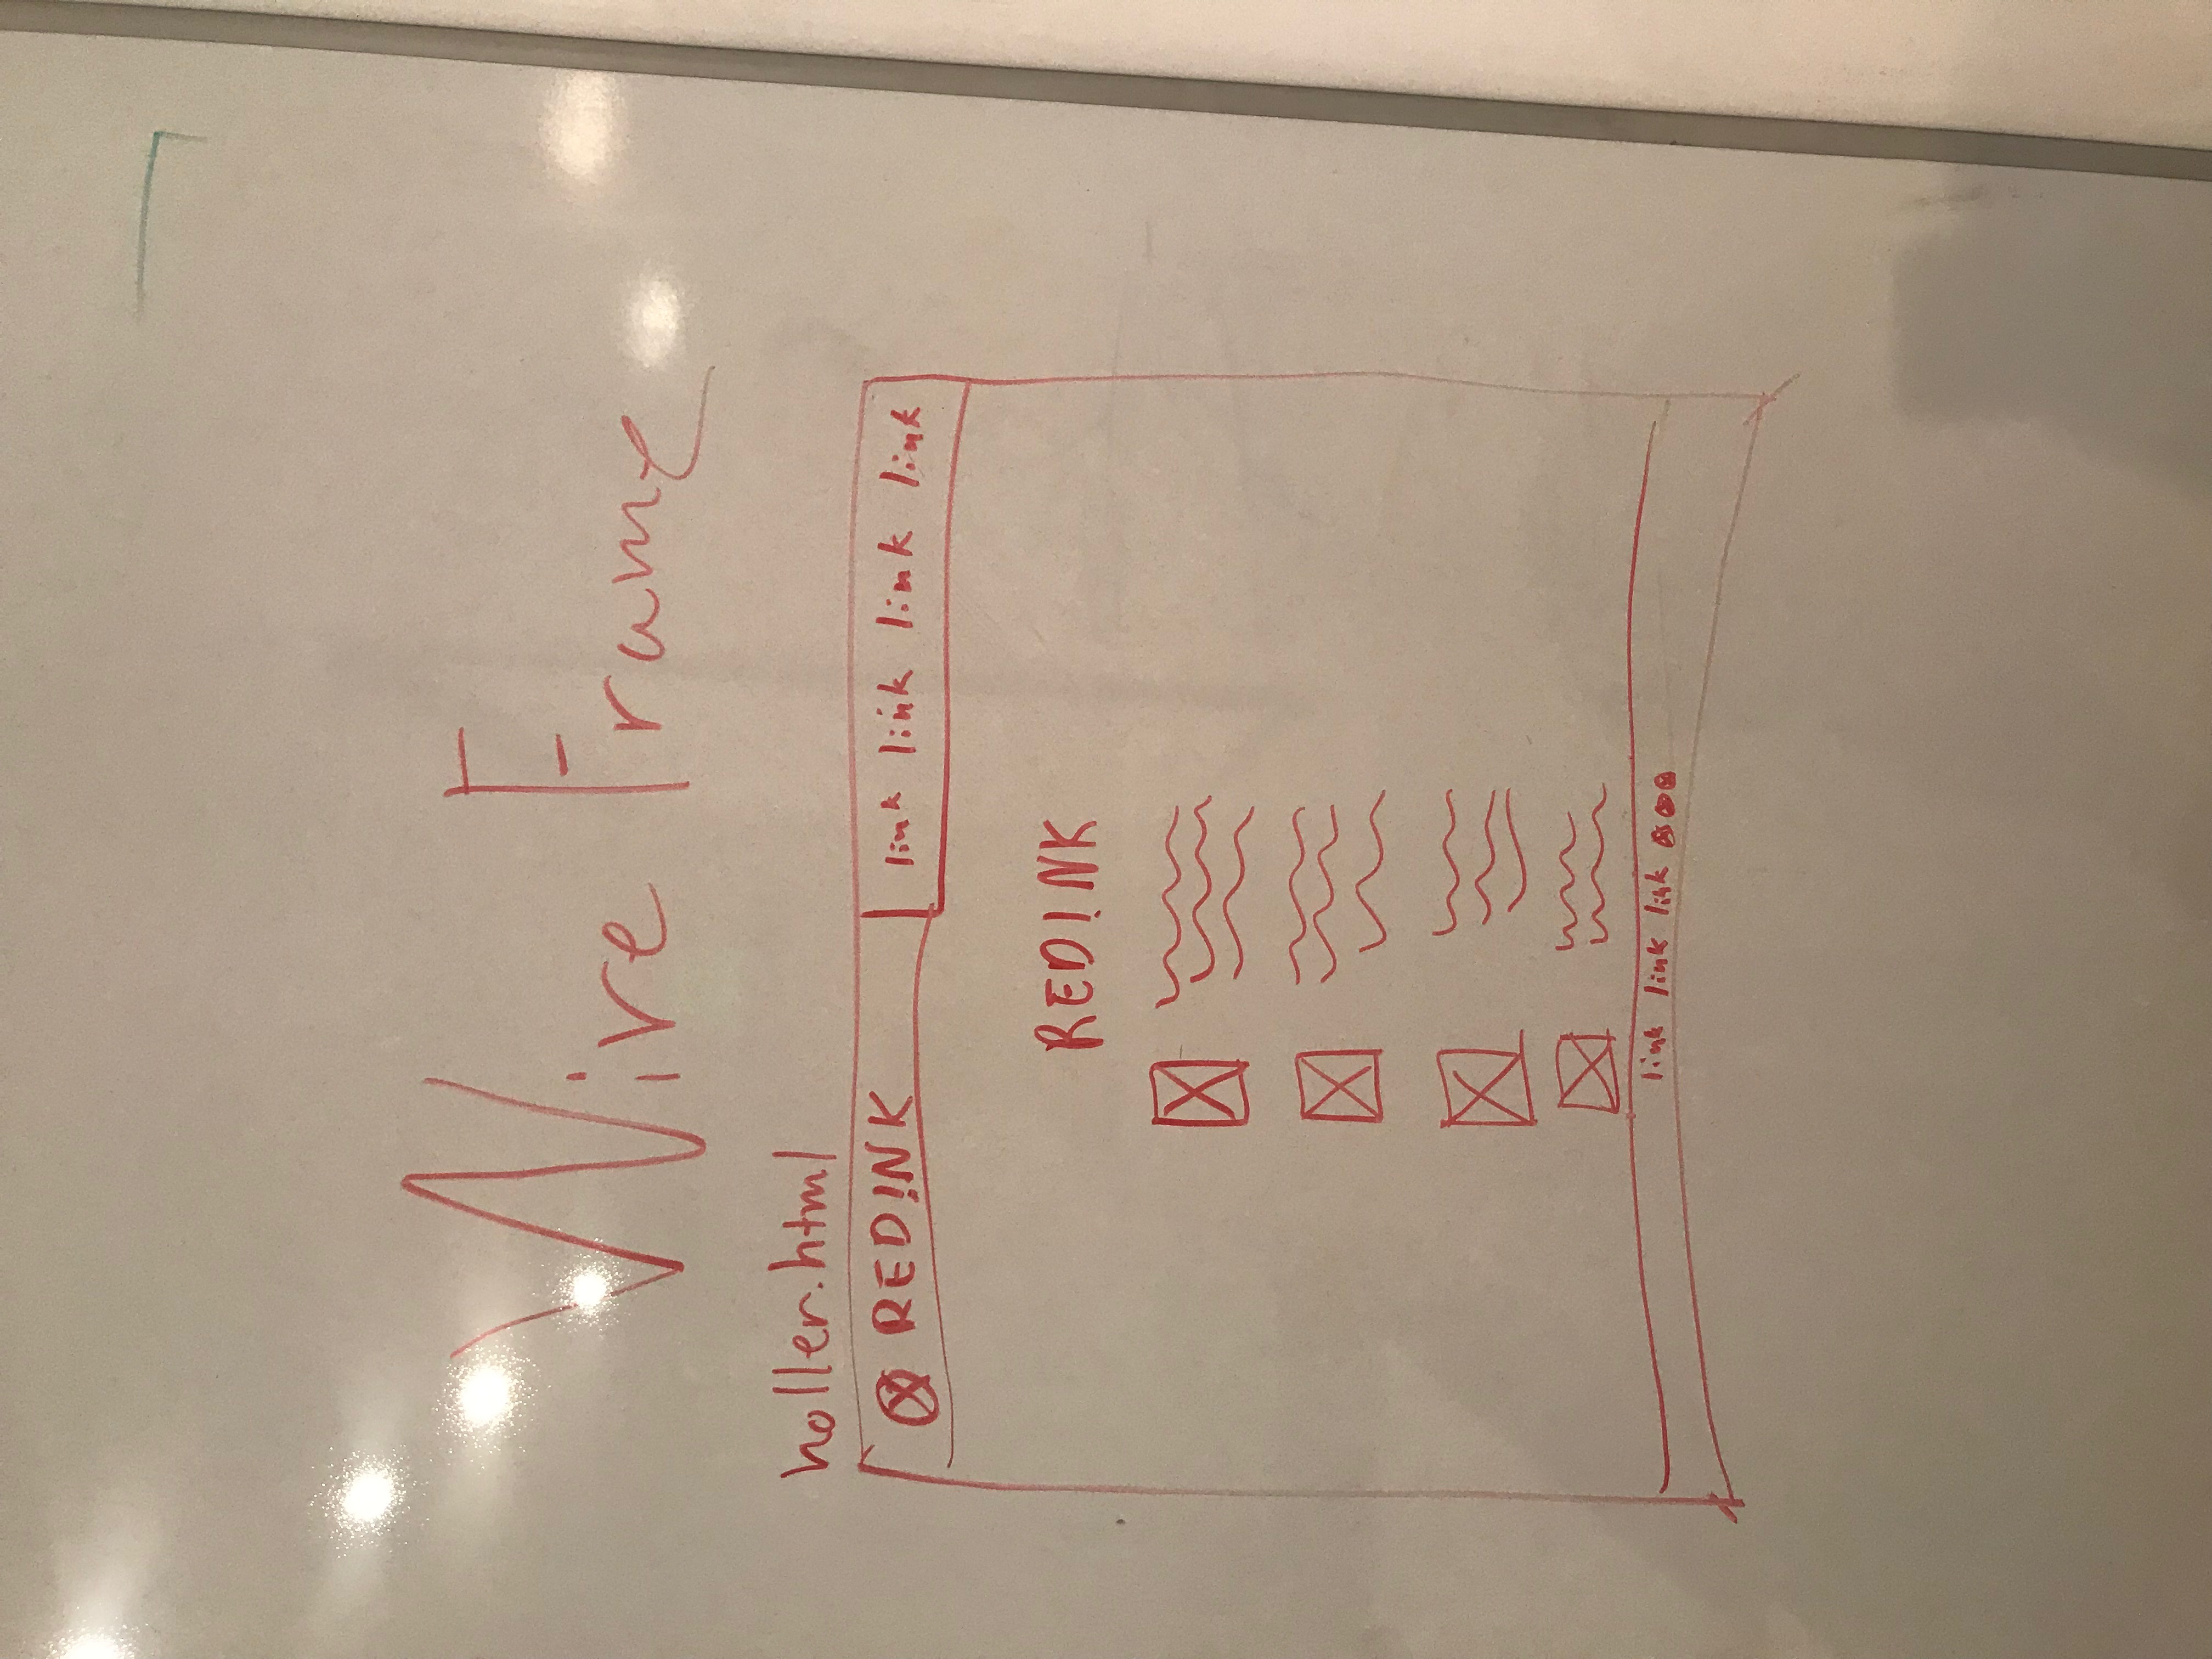 Wire Frame
holler.html
RED!NK link link link link
RED!NK
link link link